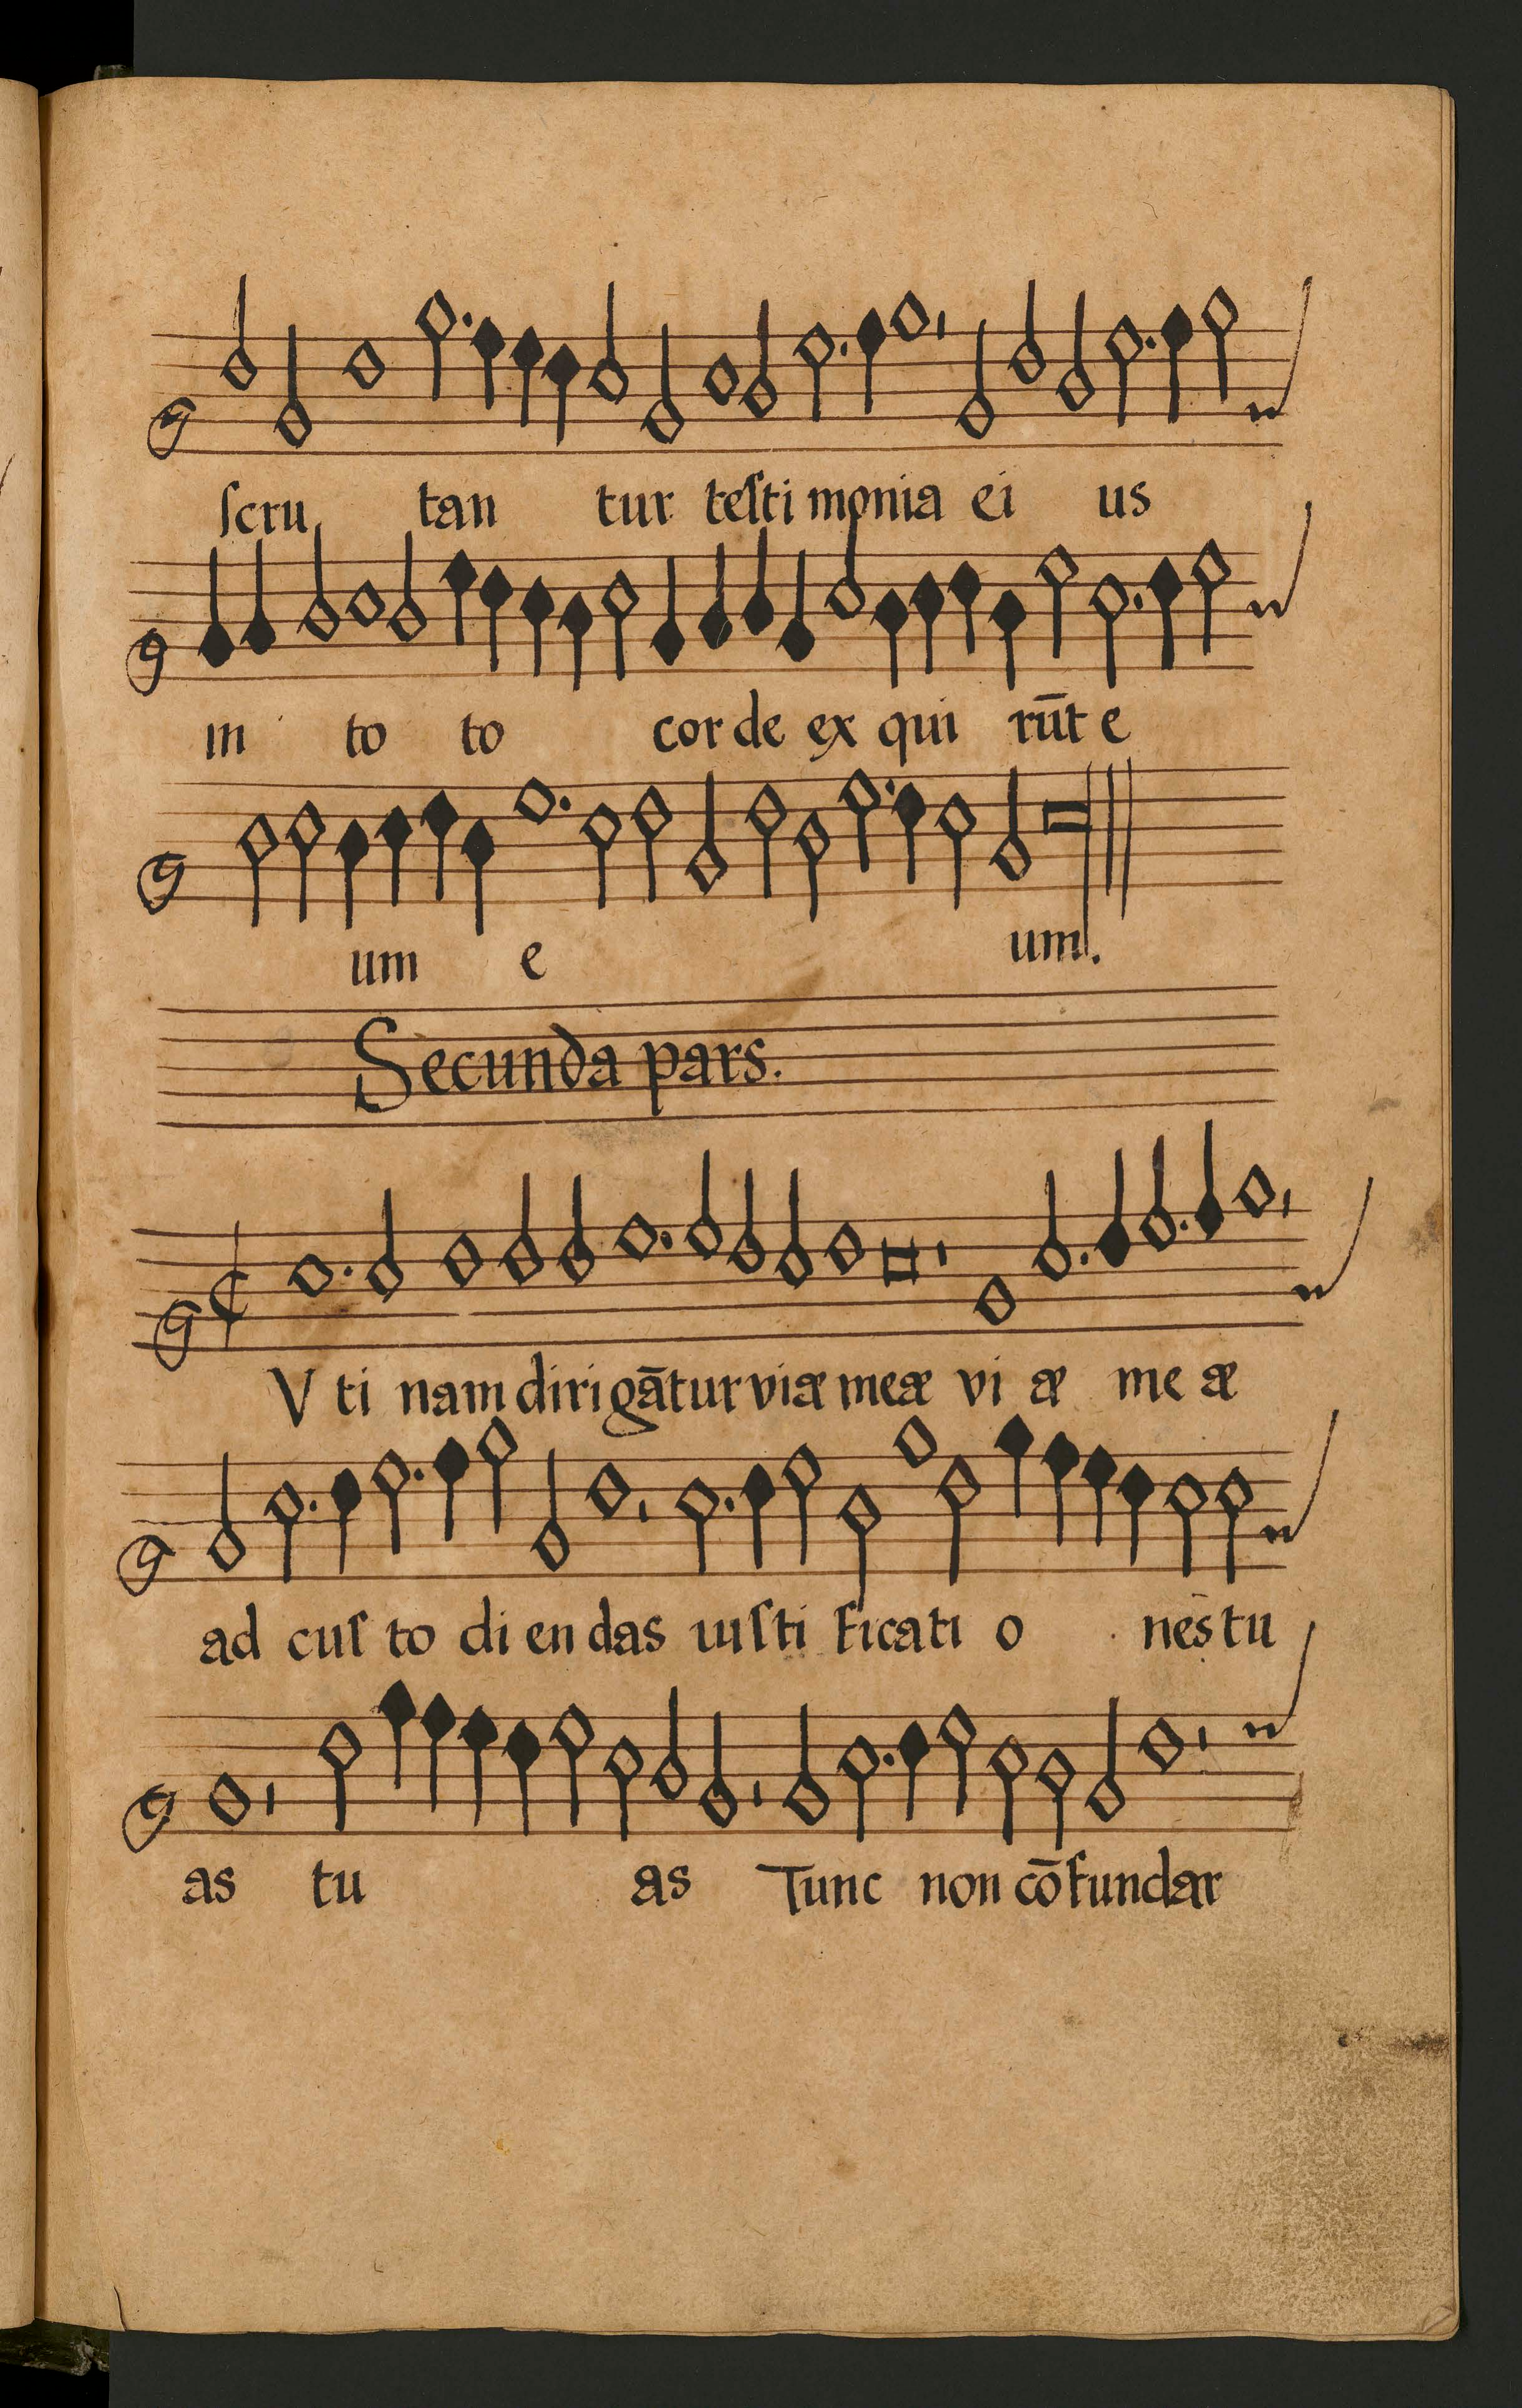 ſcru tan tur teſti monia ei us
in to to cor de ex qui rūt e
um e um.
Secunda pars.
V ti nam diri gātur viæ meæ vi æ me æ
ad cuſ to di en das iuſti ficati o nes tu
as tu as Tunc non cōfundar